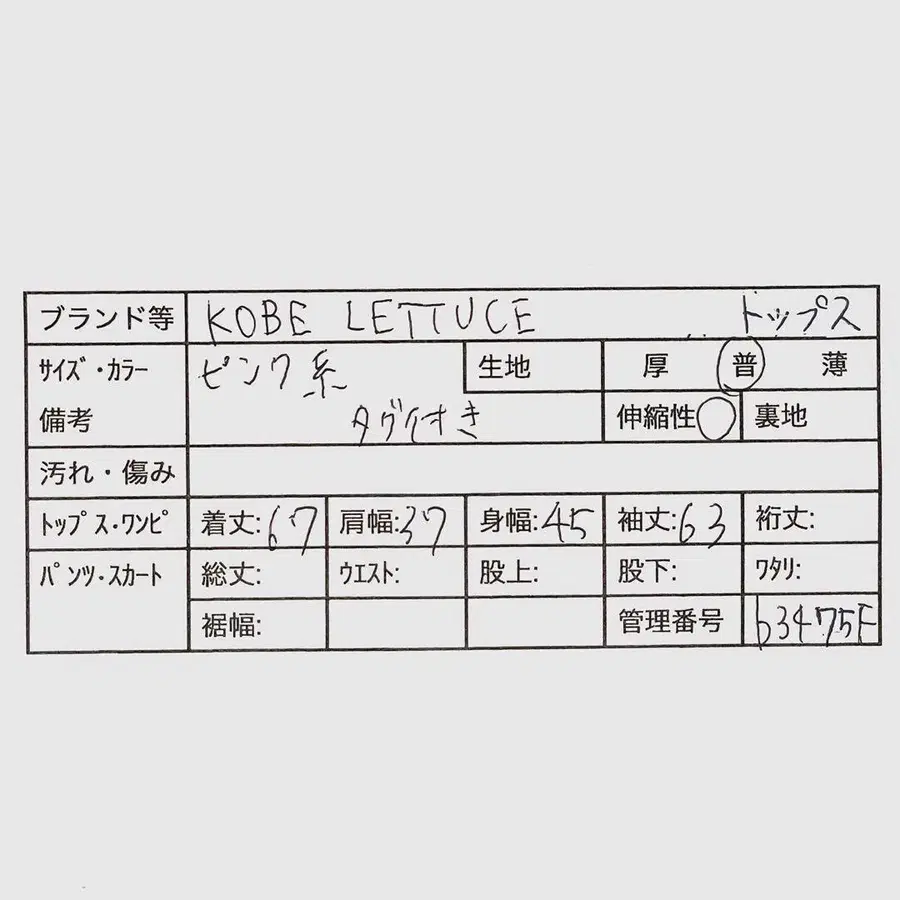 ブランド等 KOBE LETTUCE トップス
サイズ・カラー ピンク系 生地 厚 普 薄
備考 タグ付き 伸縮性 ○ 裏地
汚れ・傷み
トップス・ワンピ 着丈:67 肩幅:37 身幅:45 袖丈:63 裄丈:
パンツ・スカート 総丈: ウエスト: 股上: 股下: ワタリ:
裾幅: 管理番号 b3475F